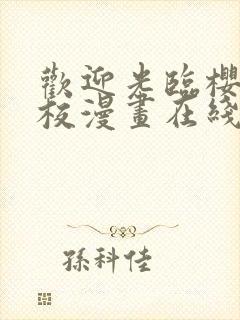 歡迎光臨櫻
板漫畫在綫
孫科佳